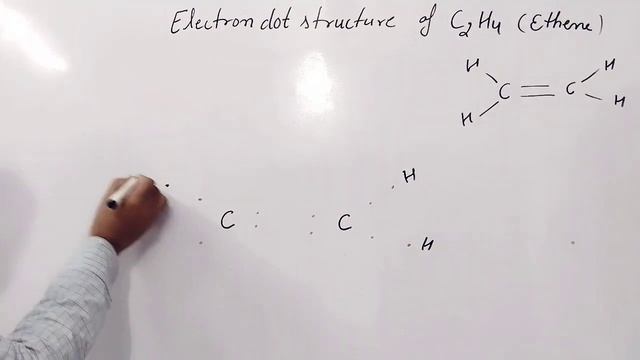 Electron dot structure of C2H4 (Ethene)
H H
C = C
H H
H
C : : C
H